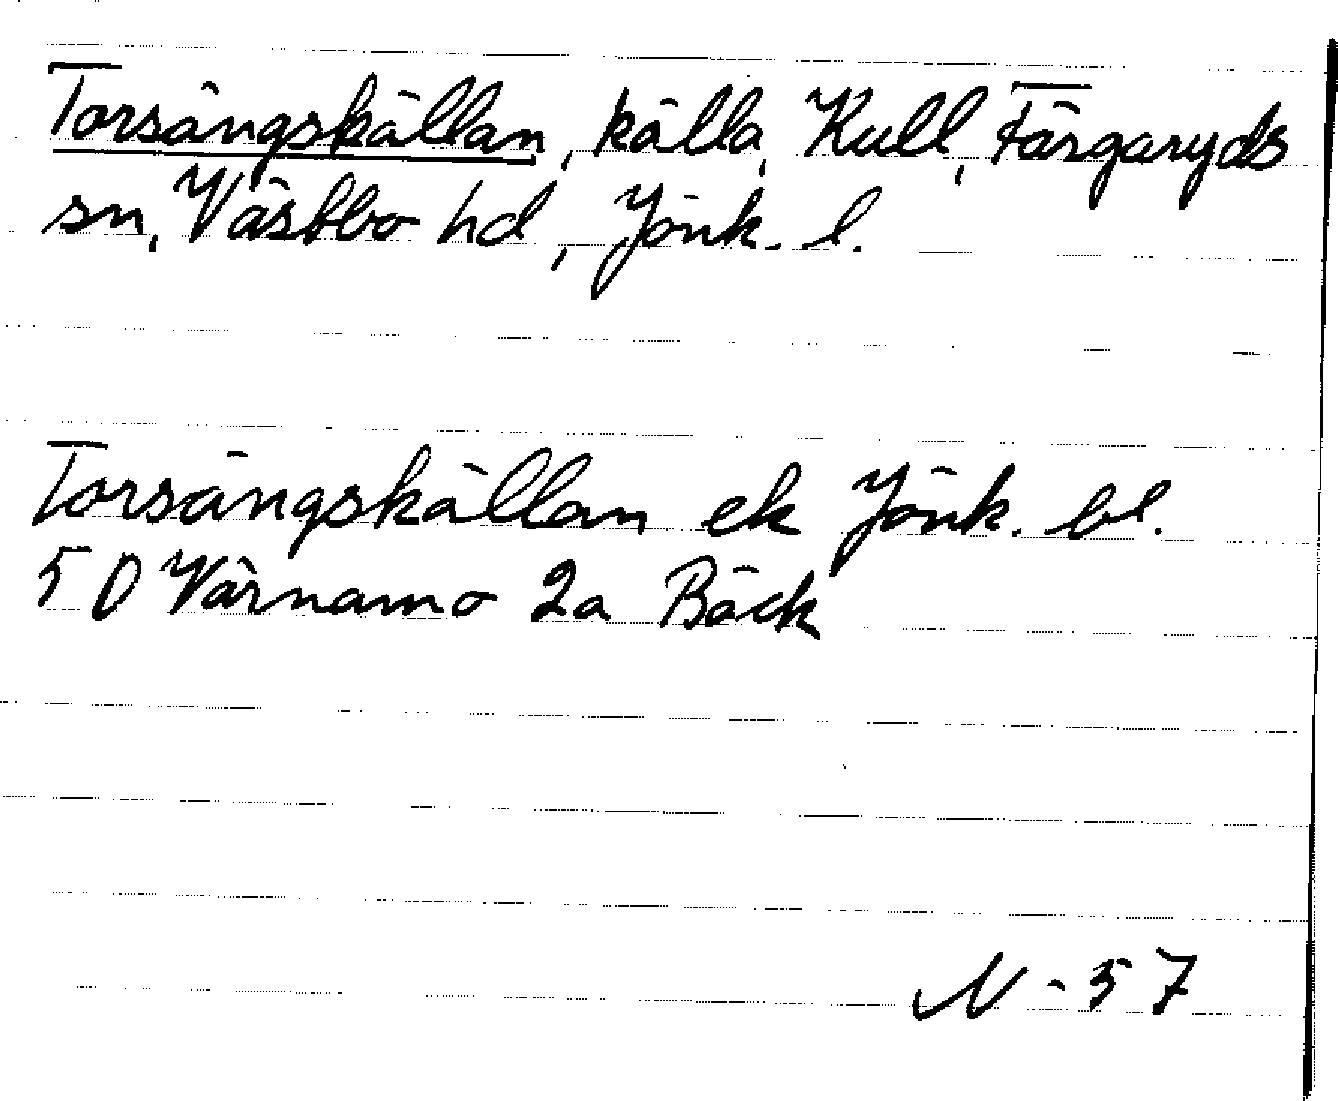 Torsängskällan, källa, Kull, Färgaryds
sn, Västbo hd, Jönk. l.
Torsängskällan ek Jönk. bl.
5 D Värnamo 2a Bäck
N-57